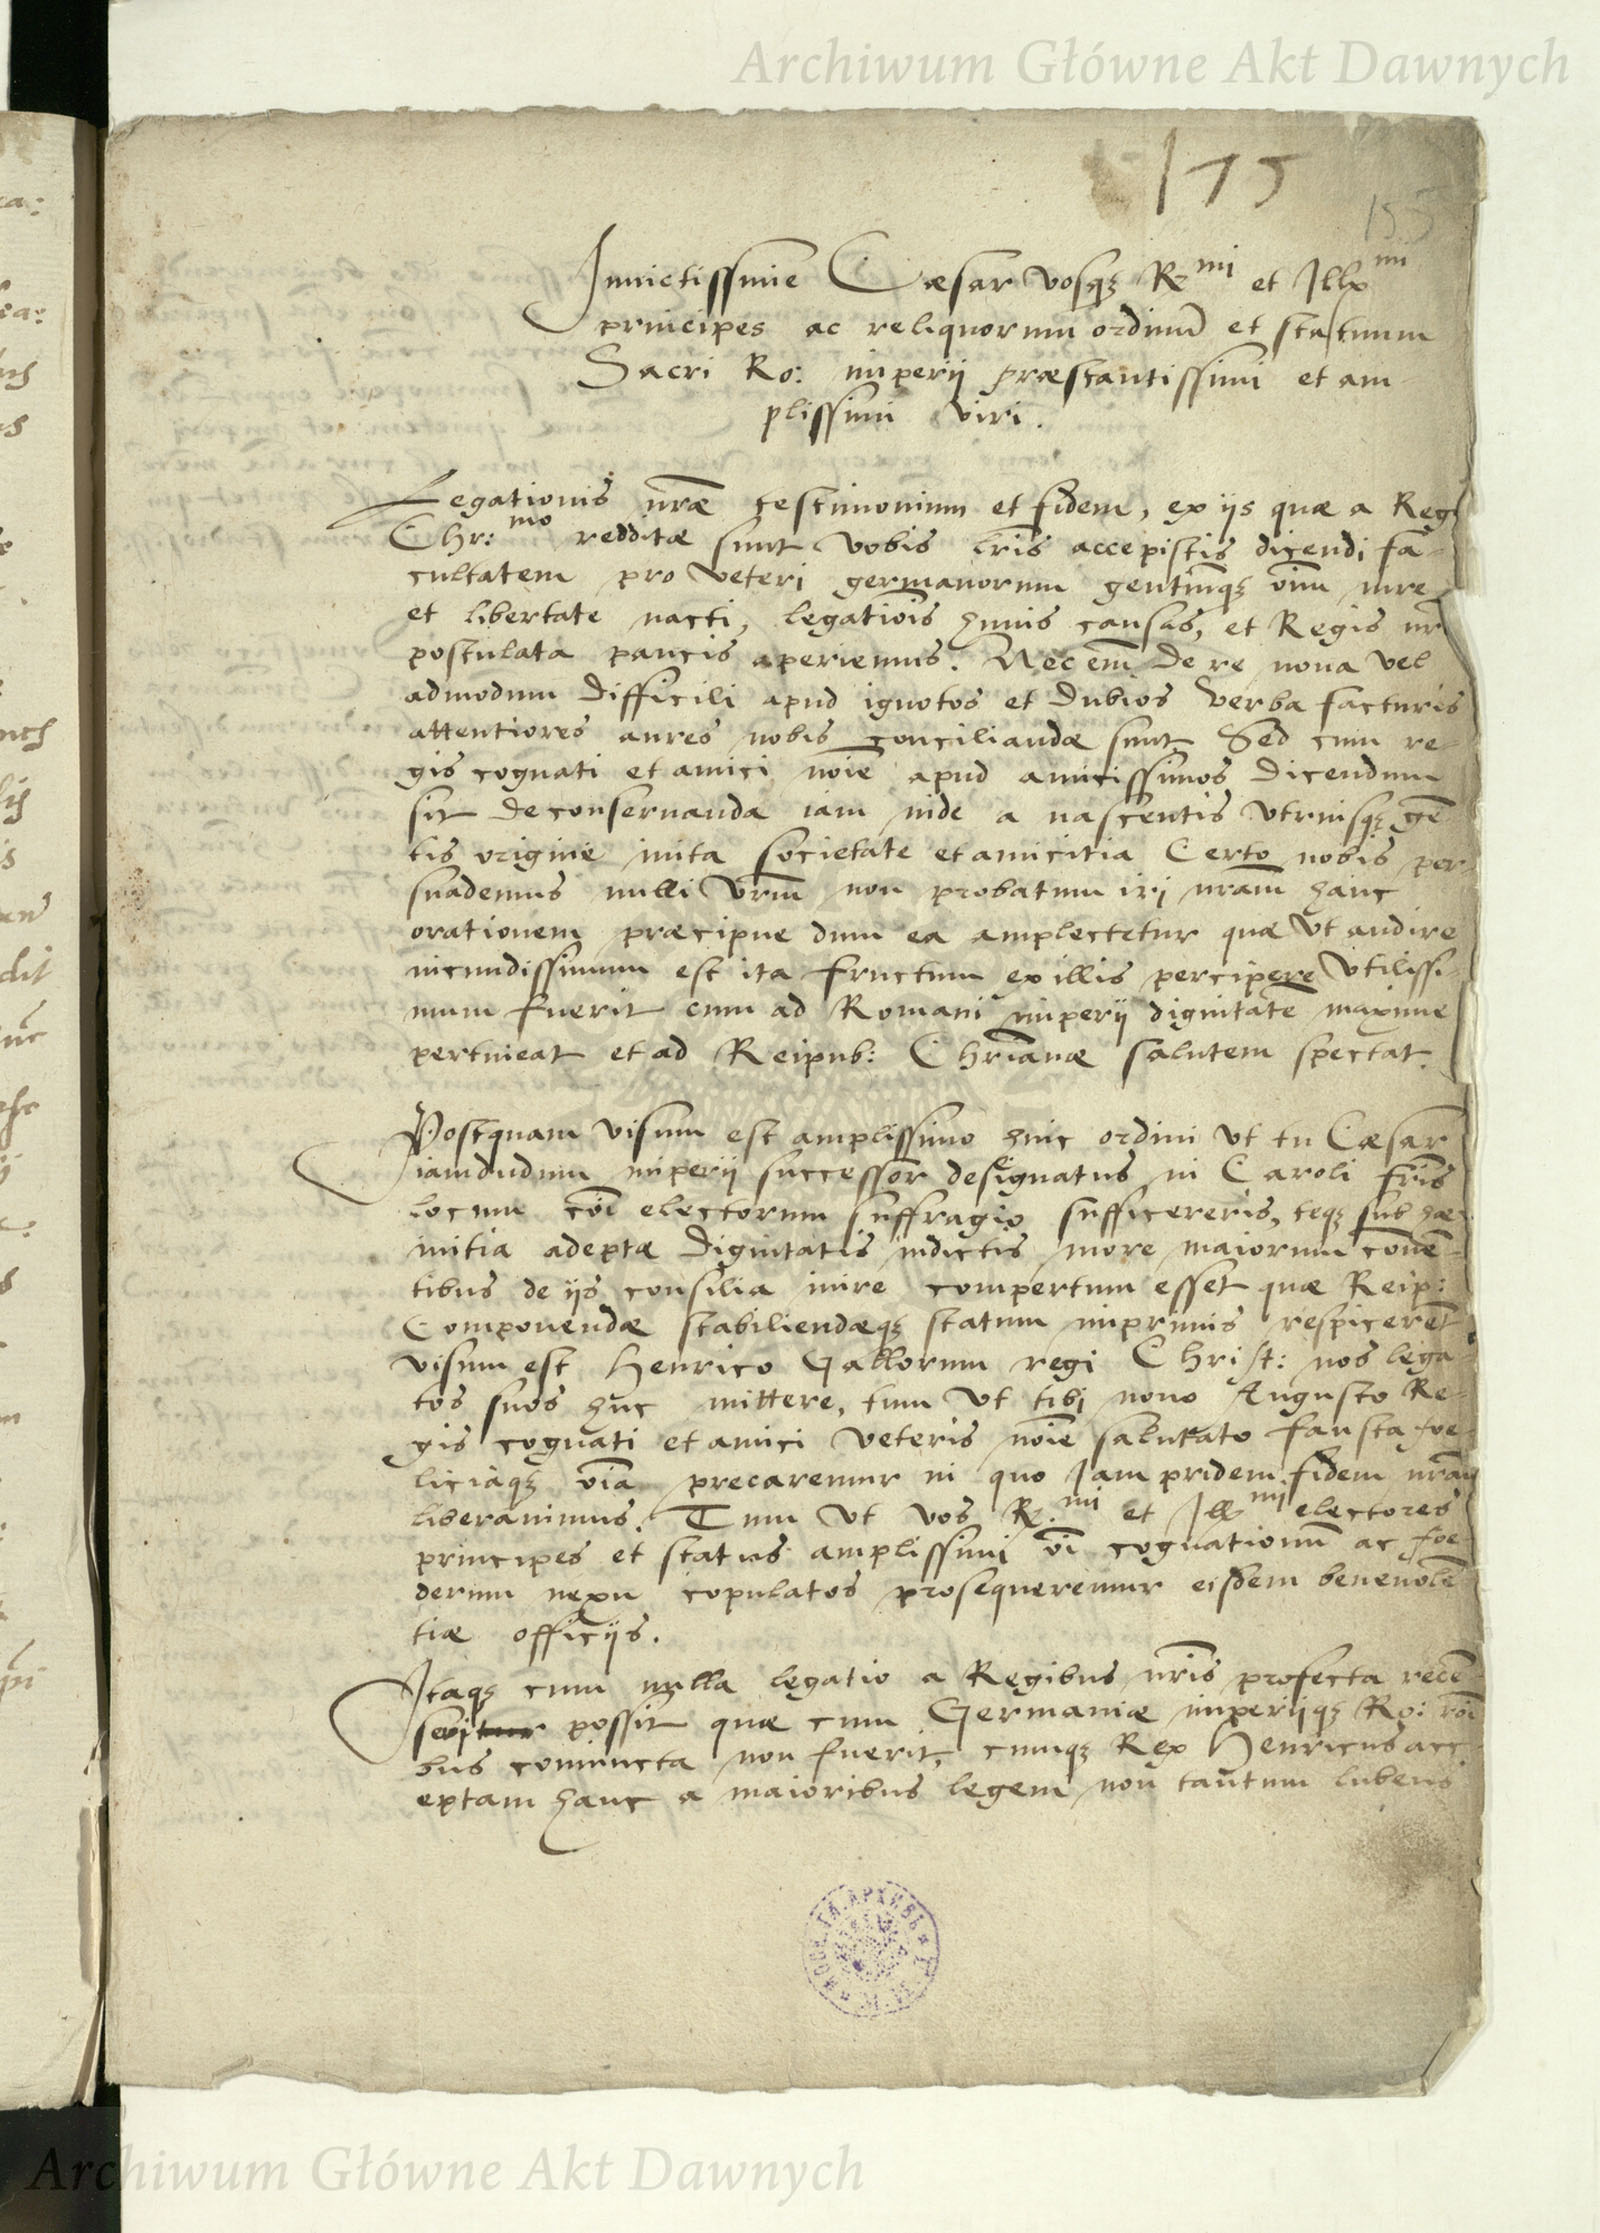 Archiwum Główne Akt Dawnych
175
155
Invictissime Cæsar vosq₃ R^mi et Ill^mi
principes ac reliquorum ordinū et statuum
Sacri Ro: imperij præstantissimi et am
plissimi viri.
Legationis nr̄æ testimonium et fidem, ex ijs quæ a Rege
Chr:^mo redditæ sunt vobis lr̄is accepistis dicendi fa-
cultatem pro veteri germanorum gentiumq₃ oīm iure
et libertate nacti, legatiōis huius causas, et Regis nr̄i
postulata paucis aperiemus. Nec em̄ de re noua vel
admodum difficili apud ignotos et dubios verba facturis
attentiores aures nobis conciliandæ sunt Sed cum re-
gis cognati et amici noīe apud amicissimos dicendum
sit de conseruanda iam inde a nascentis vtriusq₃ gē
tis origine inita societate et amicitia Certo nobis per-
suademus nulli vr̄m non probatum iri nr̄am hanc
orationem præcipue dum ea amplectetur quæ vt audire
iucundissimum est ita fructum ex illis percipere vtilissi-
mum fuerit cum ad Romani imperij dignitatē maxime
pertineat et ad Reipub: Chr̄ianæ salutem spectat.
Postquam visum est amplissimo huic ordini vt tu Cæsar
iamdudum imperij successor designatus in Caroli fr̄is
locum cōi electorum suffragio sufficereris, teq₃ sub hæc
initia adeptæ dignitatis indictis more maiorum convē-
tibus de ijs consilia inire compertum esset quæ Reip:
Componendæ stabiliendæq₃ statum imprimis respicerēt
visum est Henrico Gallorum regi Christ: nos lega-
tos suos huc mittere, tum vt tibi nouo Augusto Re-
gis cognati et amici veteris noīe salutato fausta foe-
liciaq₃ oīa precaremur in quo Jam pridem fidem nr̄am
liberauimus. Tum vt vos R.^mi et Ill^mi electores
principes et status amplissimi oī cognationum ac foe-
derum nexu copulatos prosequeremur eisdem beneuolē
tiæ officijs.
Itaq₃ cum nulla legatio a Regibus nr̄is profecta recē-
seri possit quæ cum Germaniæ imperijq₃ Ro: rōi
bus coniuncta non fuerit, cumq₃ Rex Henricus acc-
eptam hanc a maioribus legem non tantum lubens
Archiwum Główne Akt Dawnych